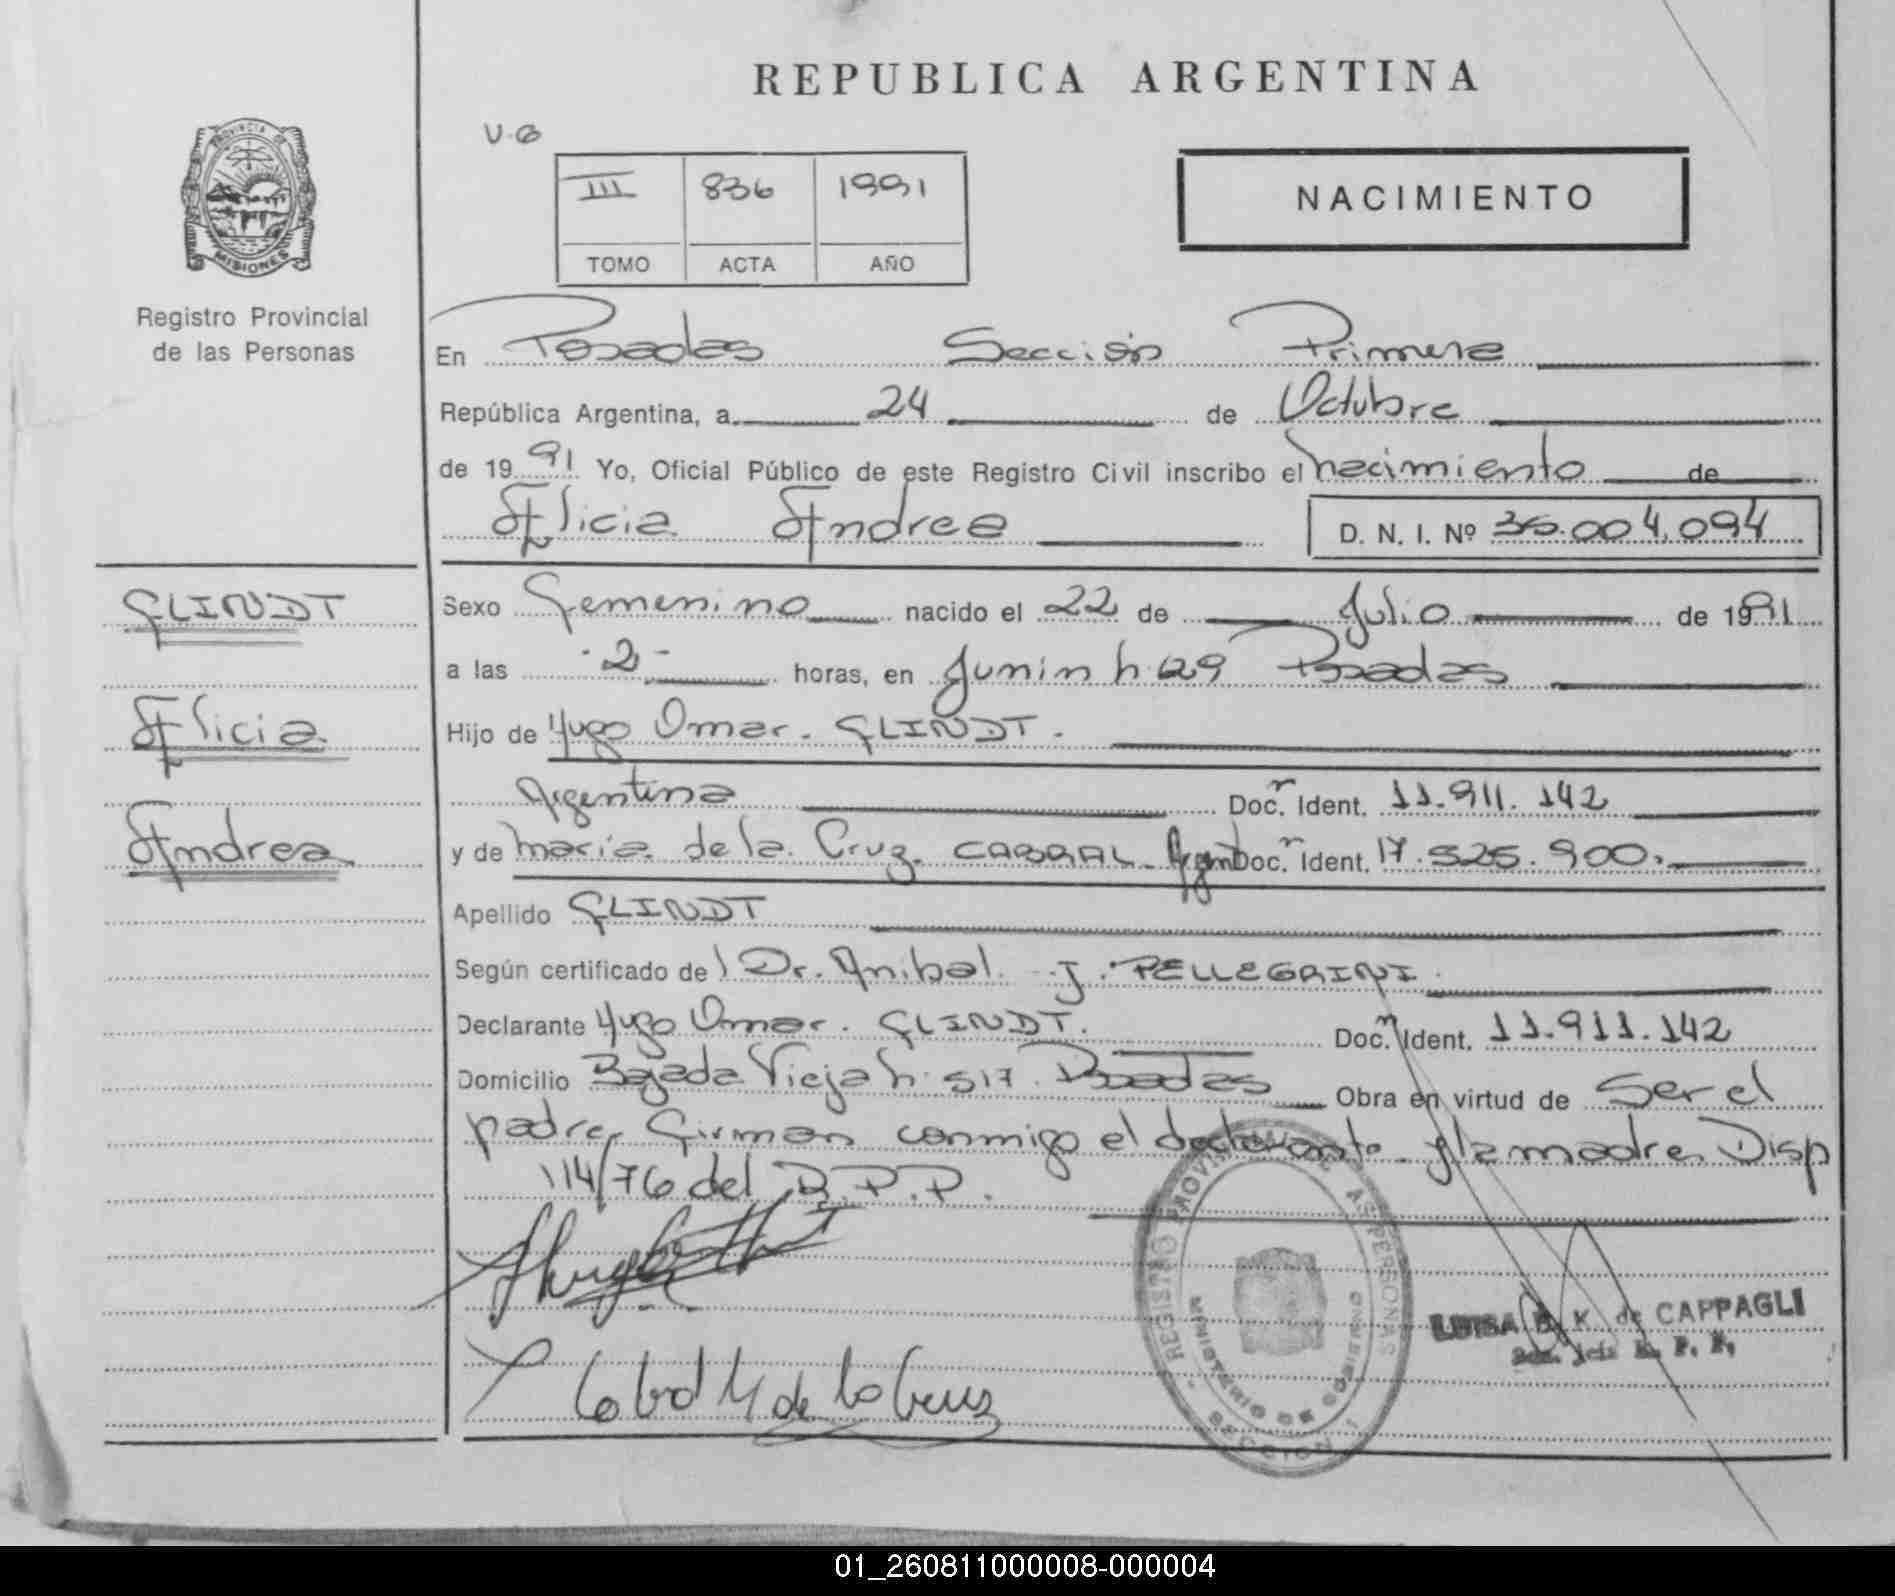 REPUBLICA ARGENTINA
V-G
III 836 1991
TOMO ACTA AÑO
NACIMIENTO
PROVINCIA DE
MISIONES
Registro Provincial
de las Personas
En Posadas Sección Primera
República Argentina, a 24 de Octubre
de 1991 Yo, Oficial Público de este Registro Civil inscribo el nacimiento de
Alicia Andrea D. N. I. Nº 36.004.094
GLINDT
Alicia
Andrea
Sexo Femenino nacido el 22 de Julio de 1991
a las -2- horas, en Junin n 29 Posadas
Hijo de Hugo Omar. GLINDT.
Argentina Doc. Ident. 11.911.142
y de Maria de la Cruz. CABRAL Argent Doc. Ident. 17.525.900.
Apellido GLINDT
Según certificado de Dr. Anibal J. PELLEGRINI
Declarante Hugo Omar. GLINDT. Doc. Ident. 11.911.142
Domicilio Bajada Vieja n 517. Posadas Obra en virtud de Ser el
padre, Firman conmigo el declarante y la madre, Disp
114/76 del R.P.P.
REGISTRO PROVINCIAL DE LAS PERSONAS
MINISTERIO DE GOBIERNO
SECCION 1
LUISA B. K. de CAPPAGLI
R. P. P.
Cabral M de la Cruz
01_260811000008-000004